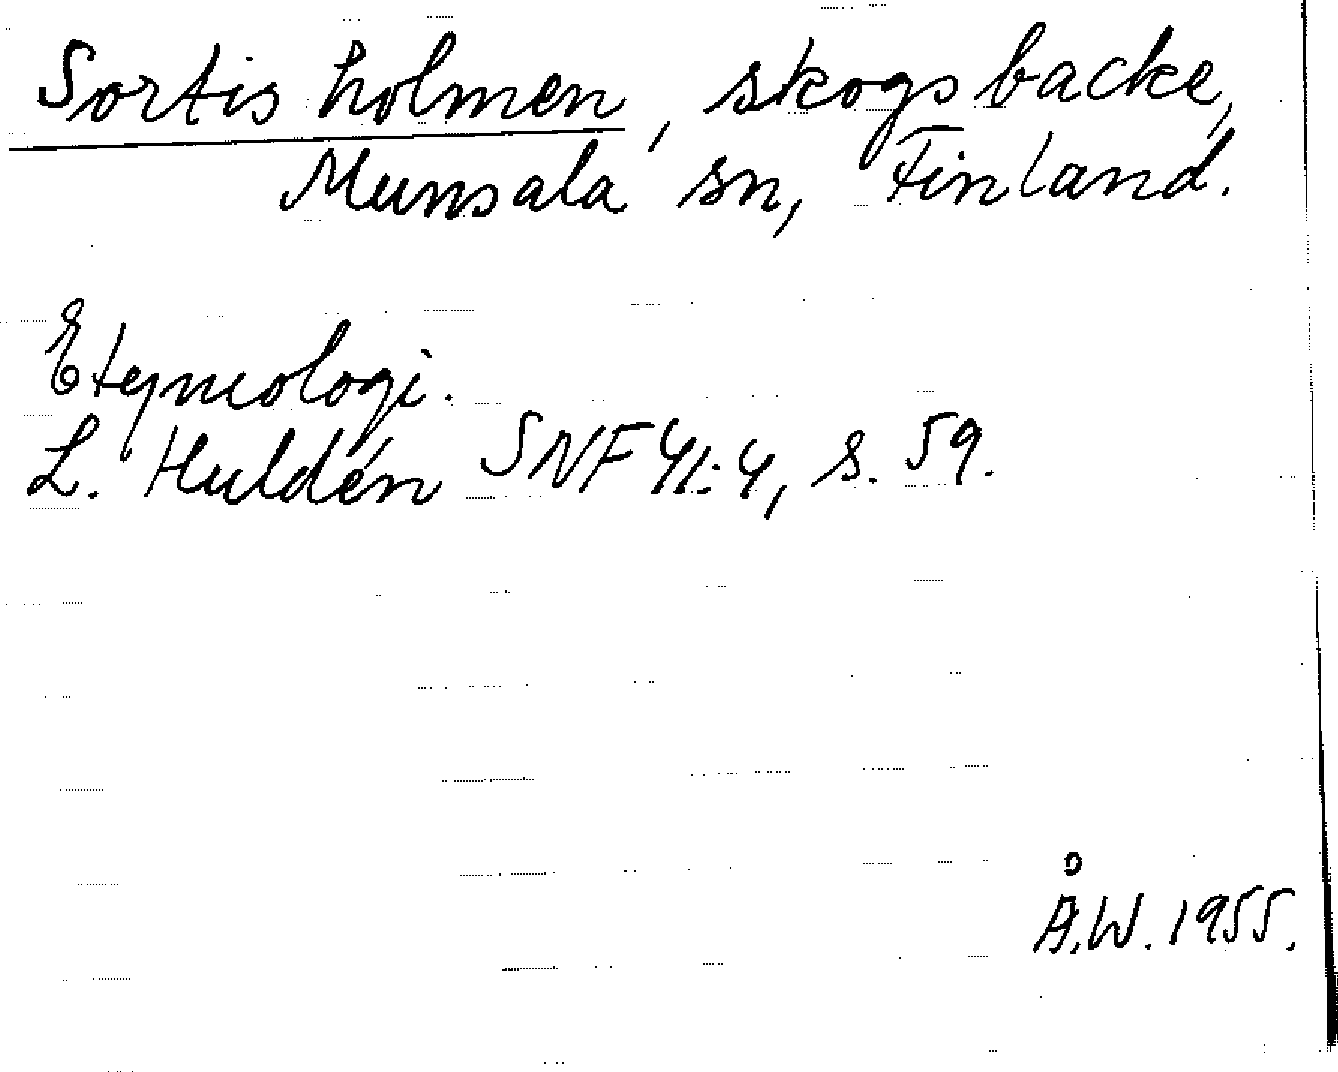 Sortis holmen, skogsbacke,
Munsala sn, Finland.
Etymologi.
L. Huldén SNF 41:4, s. 59.
Å.W. 1955.